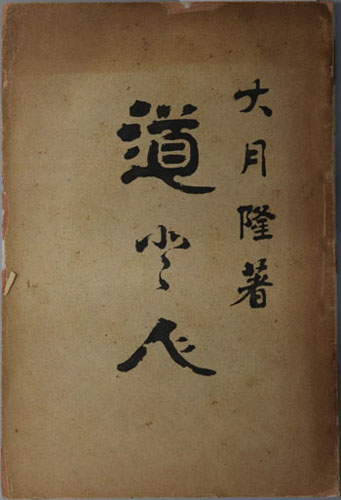 大月隆著
道と人